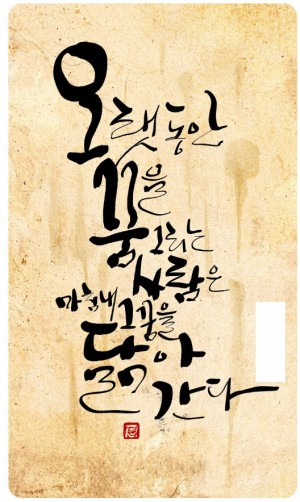 오랫동안
꿈을
그리는
사람은
마침내 그 꿈을
닮아
간다